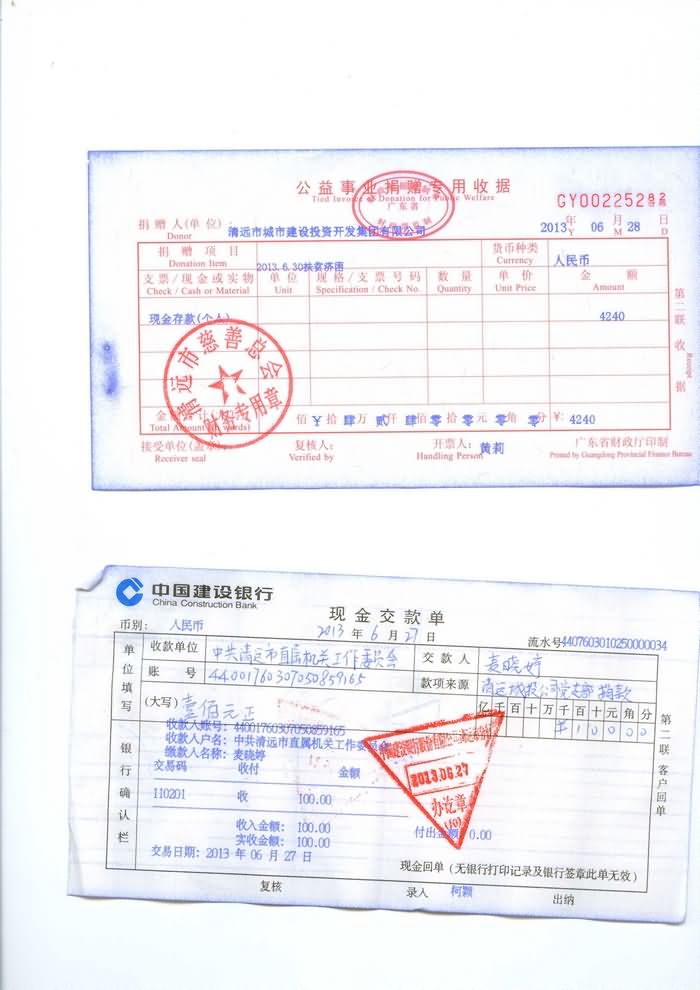 公益事业捐赠专用收据
Tied Invoice of Donation for Public Welfare
广东省
GY00225282
捐赠人(单位):
Donor
清远市城市建设投资开发集团有限公司
2013 年 06 月 28 日
Y M D
捐赠项目
Donation Item
2013.6.30扶贫济困
货币种类
Currency
人民币
支票/现金或实物 单位 规格/支票号码 数量 单价 金额
Check / Cash or Material Unit Specification / Check No. Quantity Unit Price Amount
现金存款(个人) 4240
清远市慈善总会
财务专用章
佰 ¥ 拾 肆 万 贰 仟 肆 佰 零 拾 零 元 零 角 零 分 ¥: 4240
Total Amount
接受单位(盖章) 复核人: 开票人: 黄莉 广东省财政厅印制
Receiver seal Verified by Handling Person Printed by Guangdong Provincial Finance Bureau
第二联 收据
Receipt
中国建设银行
China Construction Bank
现金交款单
币别: 人民币
2013 年 6 月 27 日
流水号4407603010250000034
单位填写
收款单位 中共清远市直属机关工作委员会 交款人 麦晓婷
账号 44001760307050859165 款项来源 清远城投公司党支部捐款
(大写) 壹佰元正
亿 千 百 十 万 千 百 十 元 角 分
¥ 1 0 0 0 0
银行确认栏
收款人账号: 44001760307050859165
收款人户名: 中共清远市直属机关工作委员会
缴款人名称: 麦晓婷
交易码 收付 金额
110201 收 100.00
收入金额: 100.00 付出金额: 0.00
实收金额: 100.00
交易日期: 2013 年 06 月 27 日
2013.06.27
办讫章
现金回单(无银行打印记录及银行签章此单无效)
复核 录入 柯颖 出纳
第二联 客户回单